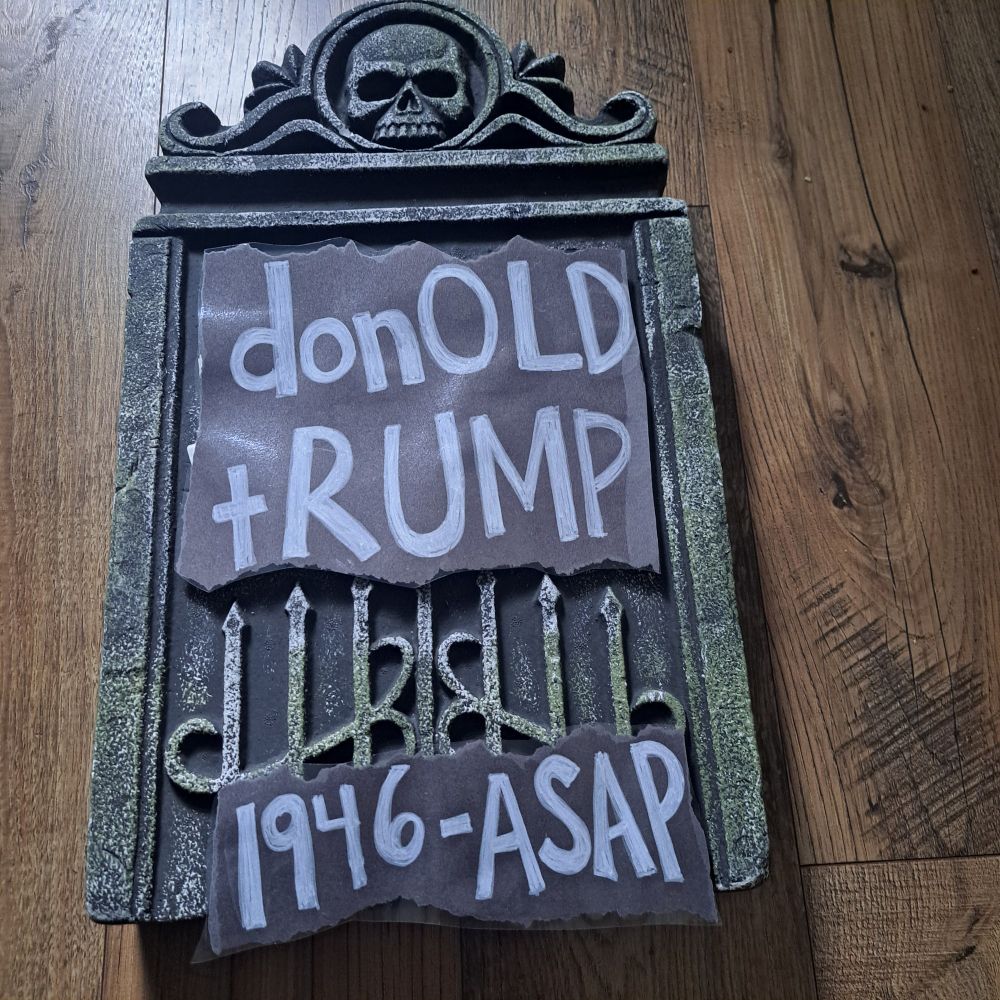 donOLD
tRUMP
1946-ASAP